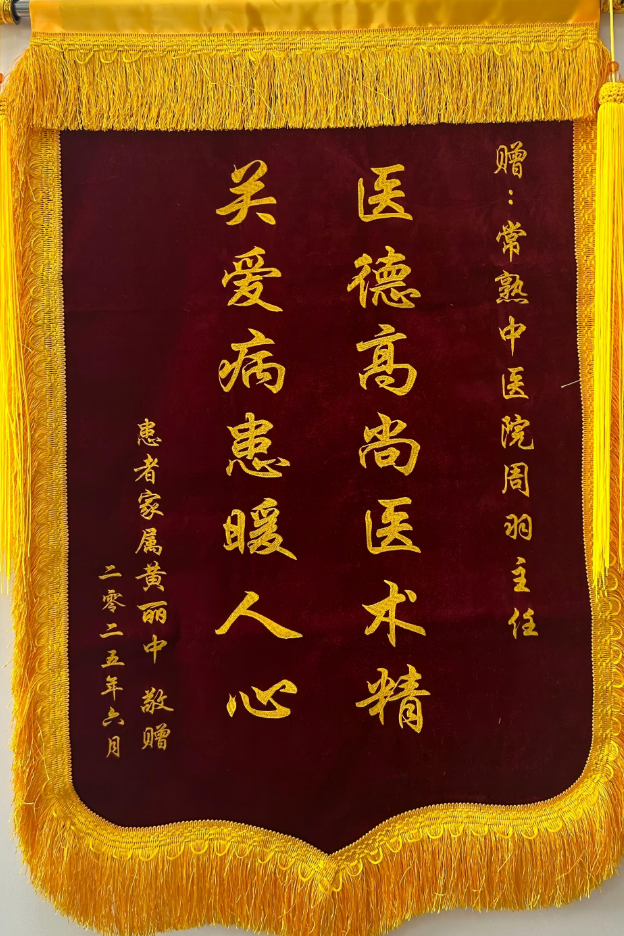 赠：常熟中医院周羽主任
医德高尚医术精
关爱病患暖人心
患者家属黄丽中 敬赠
二零二五年六月